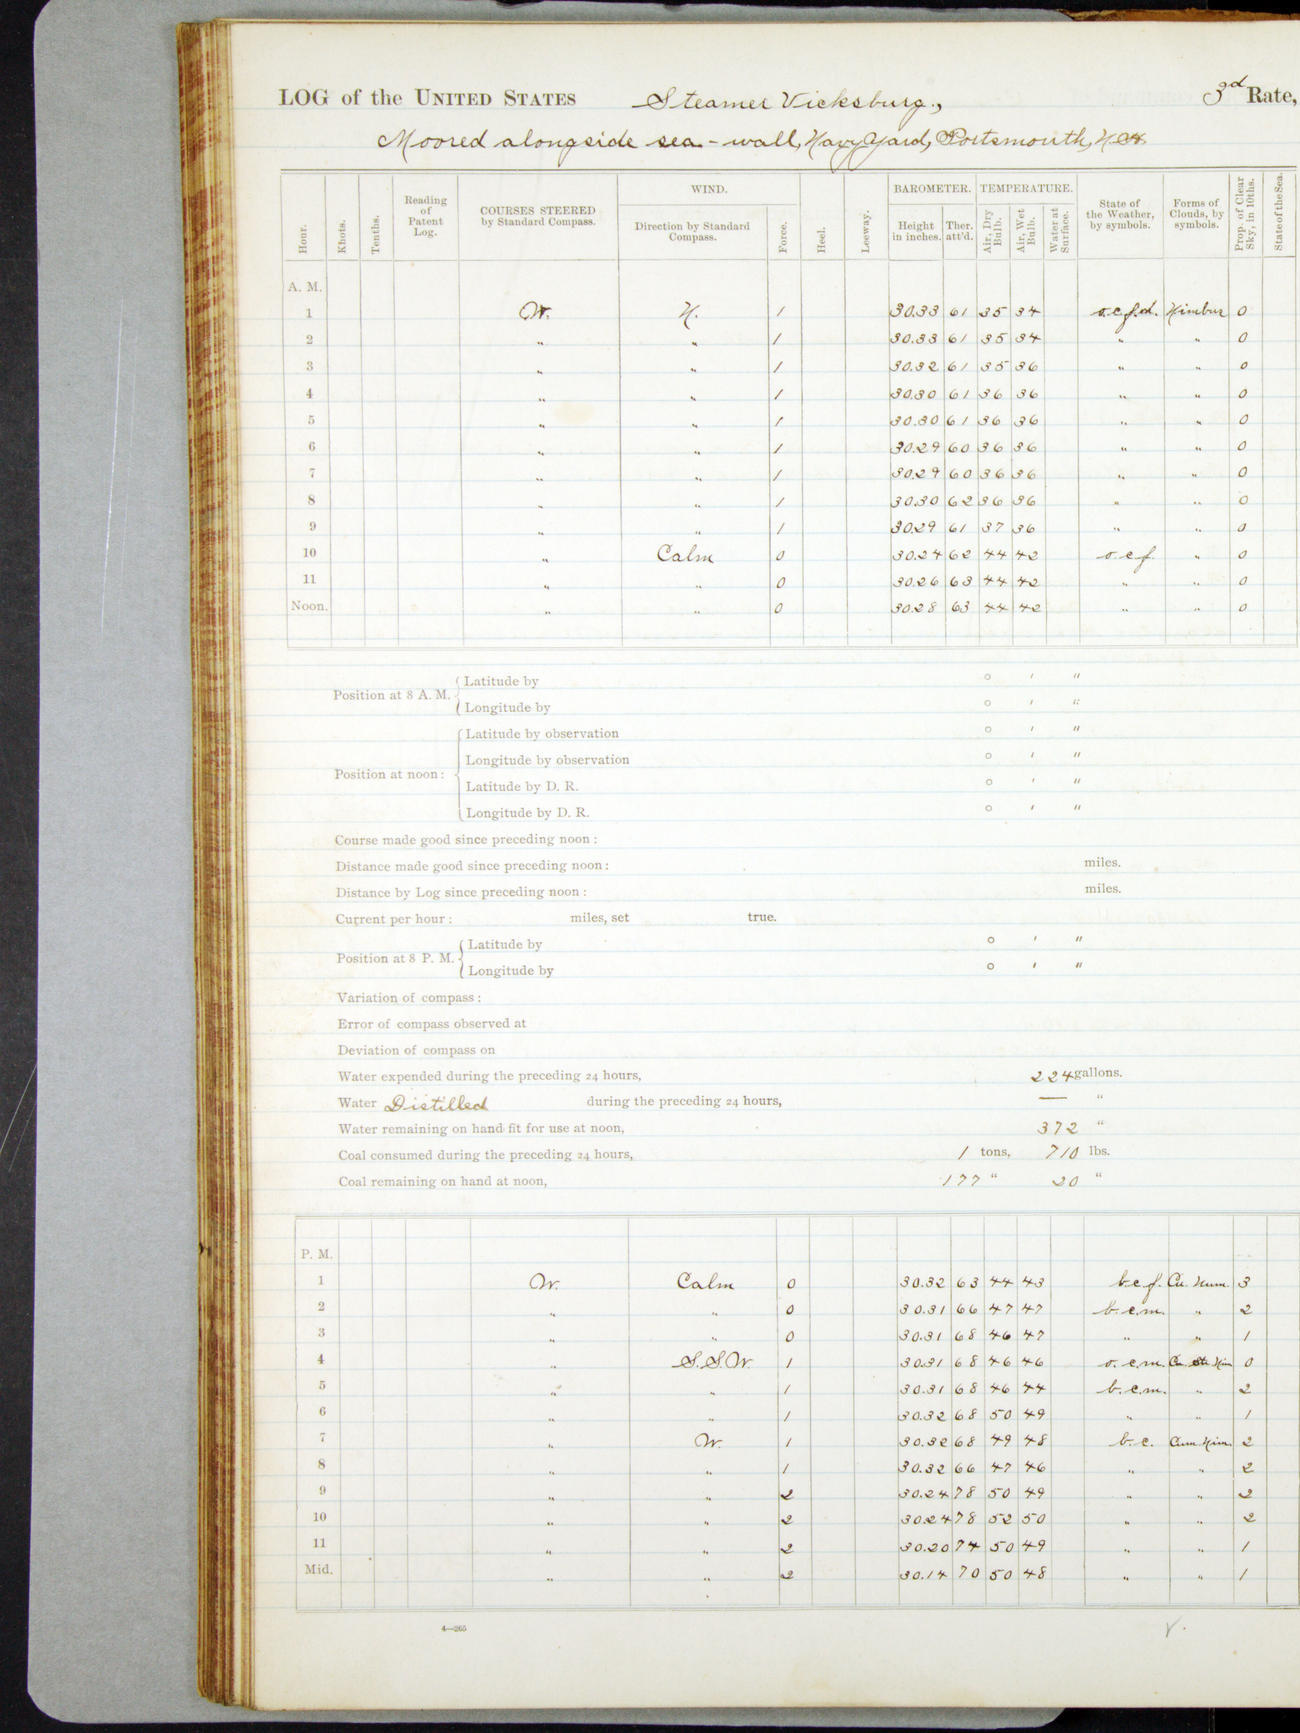 LOG of the UNITED STATES Steamer Vicksburg., 3d Rate,
Moored alongside sea-wall, Navy Yard, Portsmouth, N.H.
Hour. Knots. Tenths. Reading of Patent Log. COURSES STEERED by Standard Compass. WIND. Direction by Standard Compass. Force. Heel. Leeway. BAROMETER. Height in inches. Ther. att'd. TEMPERATURE. Air, Dry Bulb. Air, Wet Bulb. Water at Surface. State of the Weather, by symbols. Forms of Clouds, by symbols. Prop. of Clear Sky, in 10ths. State of the Sea.
A. M.
1 W. N. 1 30.33 61 35 34 o.c.f.d. Nimbus 0
2 " " 1 30.33 61 35 34 " " 0
3 " " 1 30.32 61 35 36 " " 0
4 " " 1 30.30 61 36 36 " " 0
5 " " 1 30.30 61 36 36 " " 0
6 " " 1 30.29 60 36 36 " " 0
7 " " 1 30.29 60 36 36 " " 0
8 " " 1 30.30 62 36 36 " " 0
9 " " 1 30.29 61 37 36 " " 0
10 " Calm 0 30.24 62 44 42 o.c.f. " 0
11 " " 0 30.26 63 44 42 " " 0
Noon. " " 0 30.28 63 44 42 " " 0
Position at 8 A. M. Latitude by ° ' "
Longitude by ° ' "
Position at noon: Latitude by observation ° ' "
Longitude by observation ° ' "
Latitude by D. R. ° ' "
Longitude by D. R. ° ' "
Course made good since preceding noon:
Distance made good since preceding noon: miles.
Distance by Log since preceding noon: miles.
Current per hour: miles, set true.
Position at 8 P. M. Latitude by ° ' "
Longitude by ° ' "
Variation of compass:
Error of compass observed at
Deviation of compass on
Water expended during the preceding 24 hours, 224 gallons.
Water Distilled during the preceding 24 hours, — "
Water remaining on hand fit for use at noon, 372 "
Coal consumed during the preceding 24 hours, 1 tons, 710 lbs.
Coal remaining on hand at noon, 177 " 20 "
P. M.
1 W. Calm 0 30.32 63 44 43 b.c.f. Cu. Num. 3
2 " " 0 30.31 66 47 47 b.c.m. " 2
3 " " 0 30.31 68 46 47 " " 1
4 " S.S.W. 1 30.31 68 46 46 o.c.m. Cu. Str. Nim 0
5 " " 1 30.31 68 46 44 b.c.m. " 2
6 " " 1 30.32 68 50 49 " " 1
7 " W. 1 30.32 68 49 48 b.c. Cum. Nim. 2
8 " " 1 30.32 66 47 46 " " 2
9 " " 2 30.24 78 50 49 " " 2
10 " " 2 30.24 78 52 50 " " 2
11 " " 2 30.20 74 50 49 " " 1
Mid. " " 2 30.14 70 50 48 " " 1
4—265